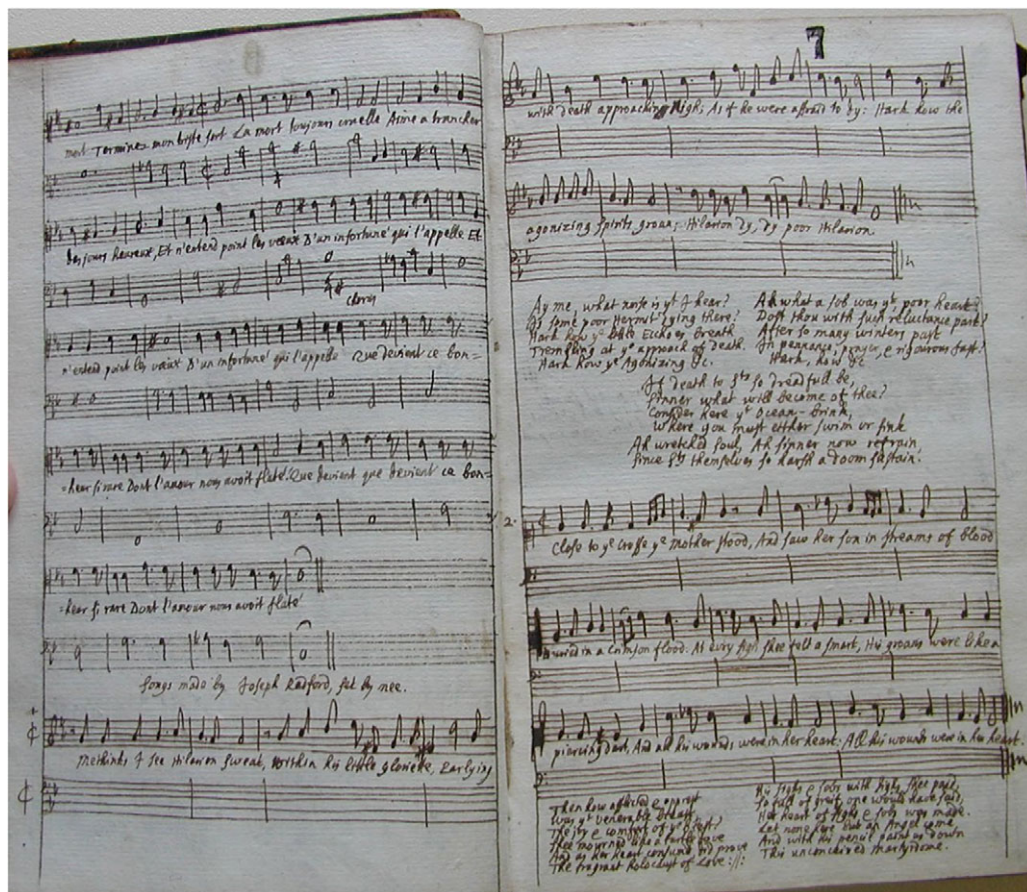 mort Terminez mon triste sort La mort toujours cruelle Aime a trancher
des jours heureux, Et n'entend point les vœux D'un infortuné qui l'appelle Et
Cloris
n'entend point les vœux D'un infortuné qui l'appelle Que devient ce bon=
=heur si rare Dont l'amour nous avoit flaté. Que devient que devient ce bon=
=heur si rare Dont l'amour nous avoit flaté
Songs made by Joseph Radford, set by mee.
Methinks I see Hilarion sweat, within his little gloriette, Earlying
7
with death approaching Nigh; As if he were afraid to dy: Hark how the
agonizing spirits groan; Hilarion dy, dy poor Hilarion.
Ay me, what noise is yt I hear?
Is some poor Hermit dying there?
Hark how ye Echoes breath
Trembling at ye approach of death.
Hark how ye Agonizing &c.
Ah what a sob was yt, poor heart?
Dost thou with such reluctance part?
After so many winters past
In pennance, prayer, & rigourous fast?
Hark, how &c
If death to Sts so dreadfull be,
Sinner what will become of thee?
Consider here yt Ocean-brink,
Where you must either swim or sink
Ah wretched soul, Ah sinner now refrain,
Since Sts themselves so harsh a doom sustain.
2. Close to ye Crosse ye Mother stood, And saw her son in streams of blood
Buried in a Crimson flood. At every sigh shee felt a smart, His groans were like a
piercing dart, And all his wounds were in her heart; All his wounds were in her heart.
Then how afflicted & opprest
was yt venerable breast,
The joy & comfort of ye
Shee mourned like a turtle dove
And as her heart consum'd did prove
The fragrant holocaust of Love :||:
His sighs & sobs with sighs shee paid,
So full of grief, one would have said,
Her heart of sighs & sobs was made.
Let none here but an Angel come
And with his pencil paint us down
This unconceived Martyrdome.